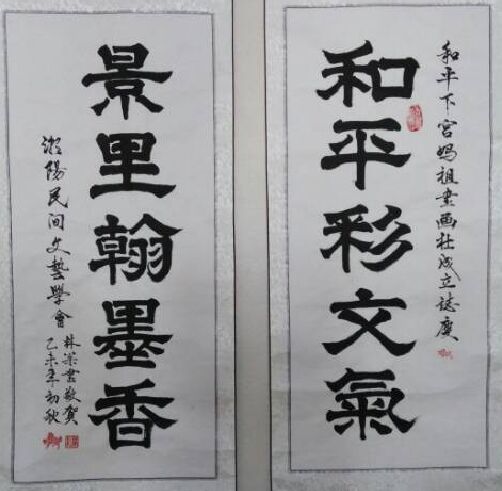 和平下宫妈祖书画社成立誌庆
和平彩文氣
景里翰墨香
潮陽民间文藝學會
林崇書敬賀
乙未年初秋